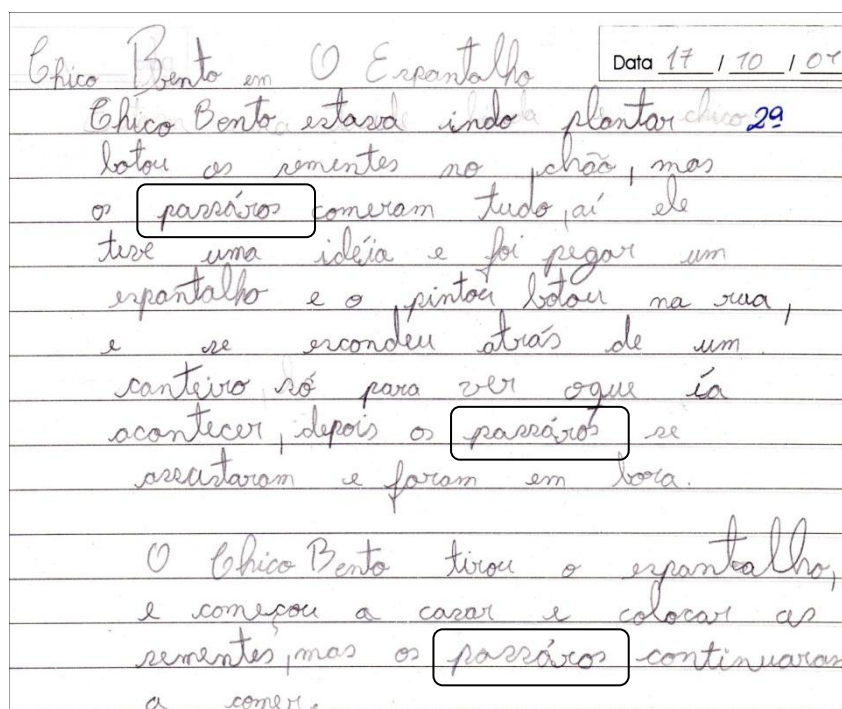 Chico Bento em O Espantalho Data 17 / 10 / 07
Chico Bento estava indo plantar chico 2ª
botou as sementes no chão, mas
os passáros comeram tudo, aí ele
teve uma idéia e foi pegar um
espantalho e o pintou botou na rua,
e se escondeu atrás de um
canteiro só para ver oque ía
acontecer, depois os passáros se
assustaram e foram em bora.
O Chico Bento tirou o espantalho,
e começou a cavar e colocar as
sementes, mas os passáros continuaram
a comer.